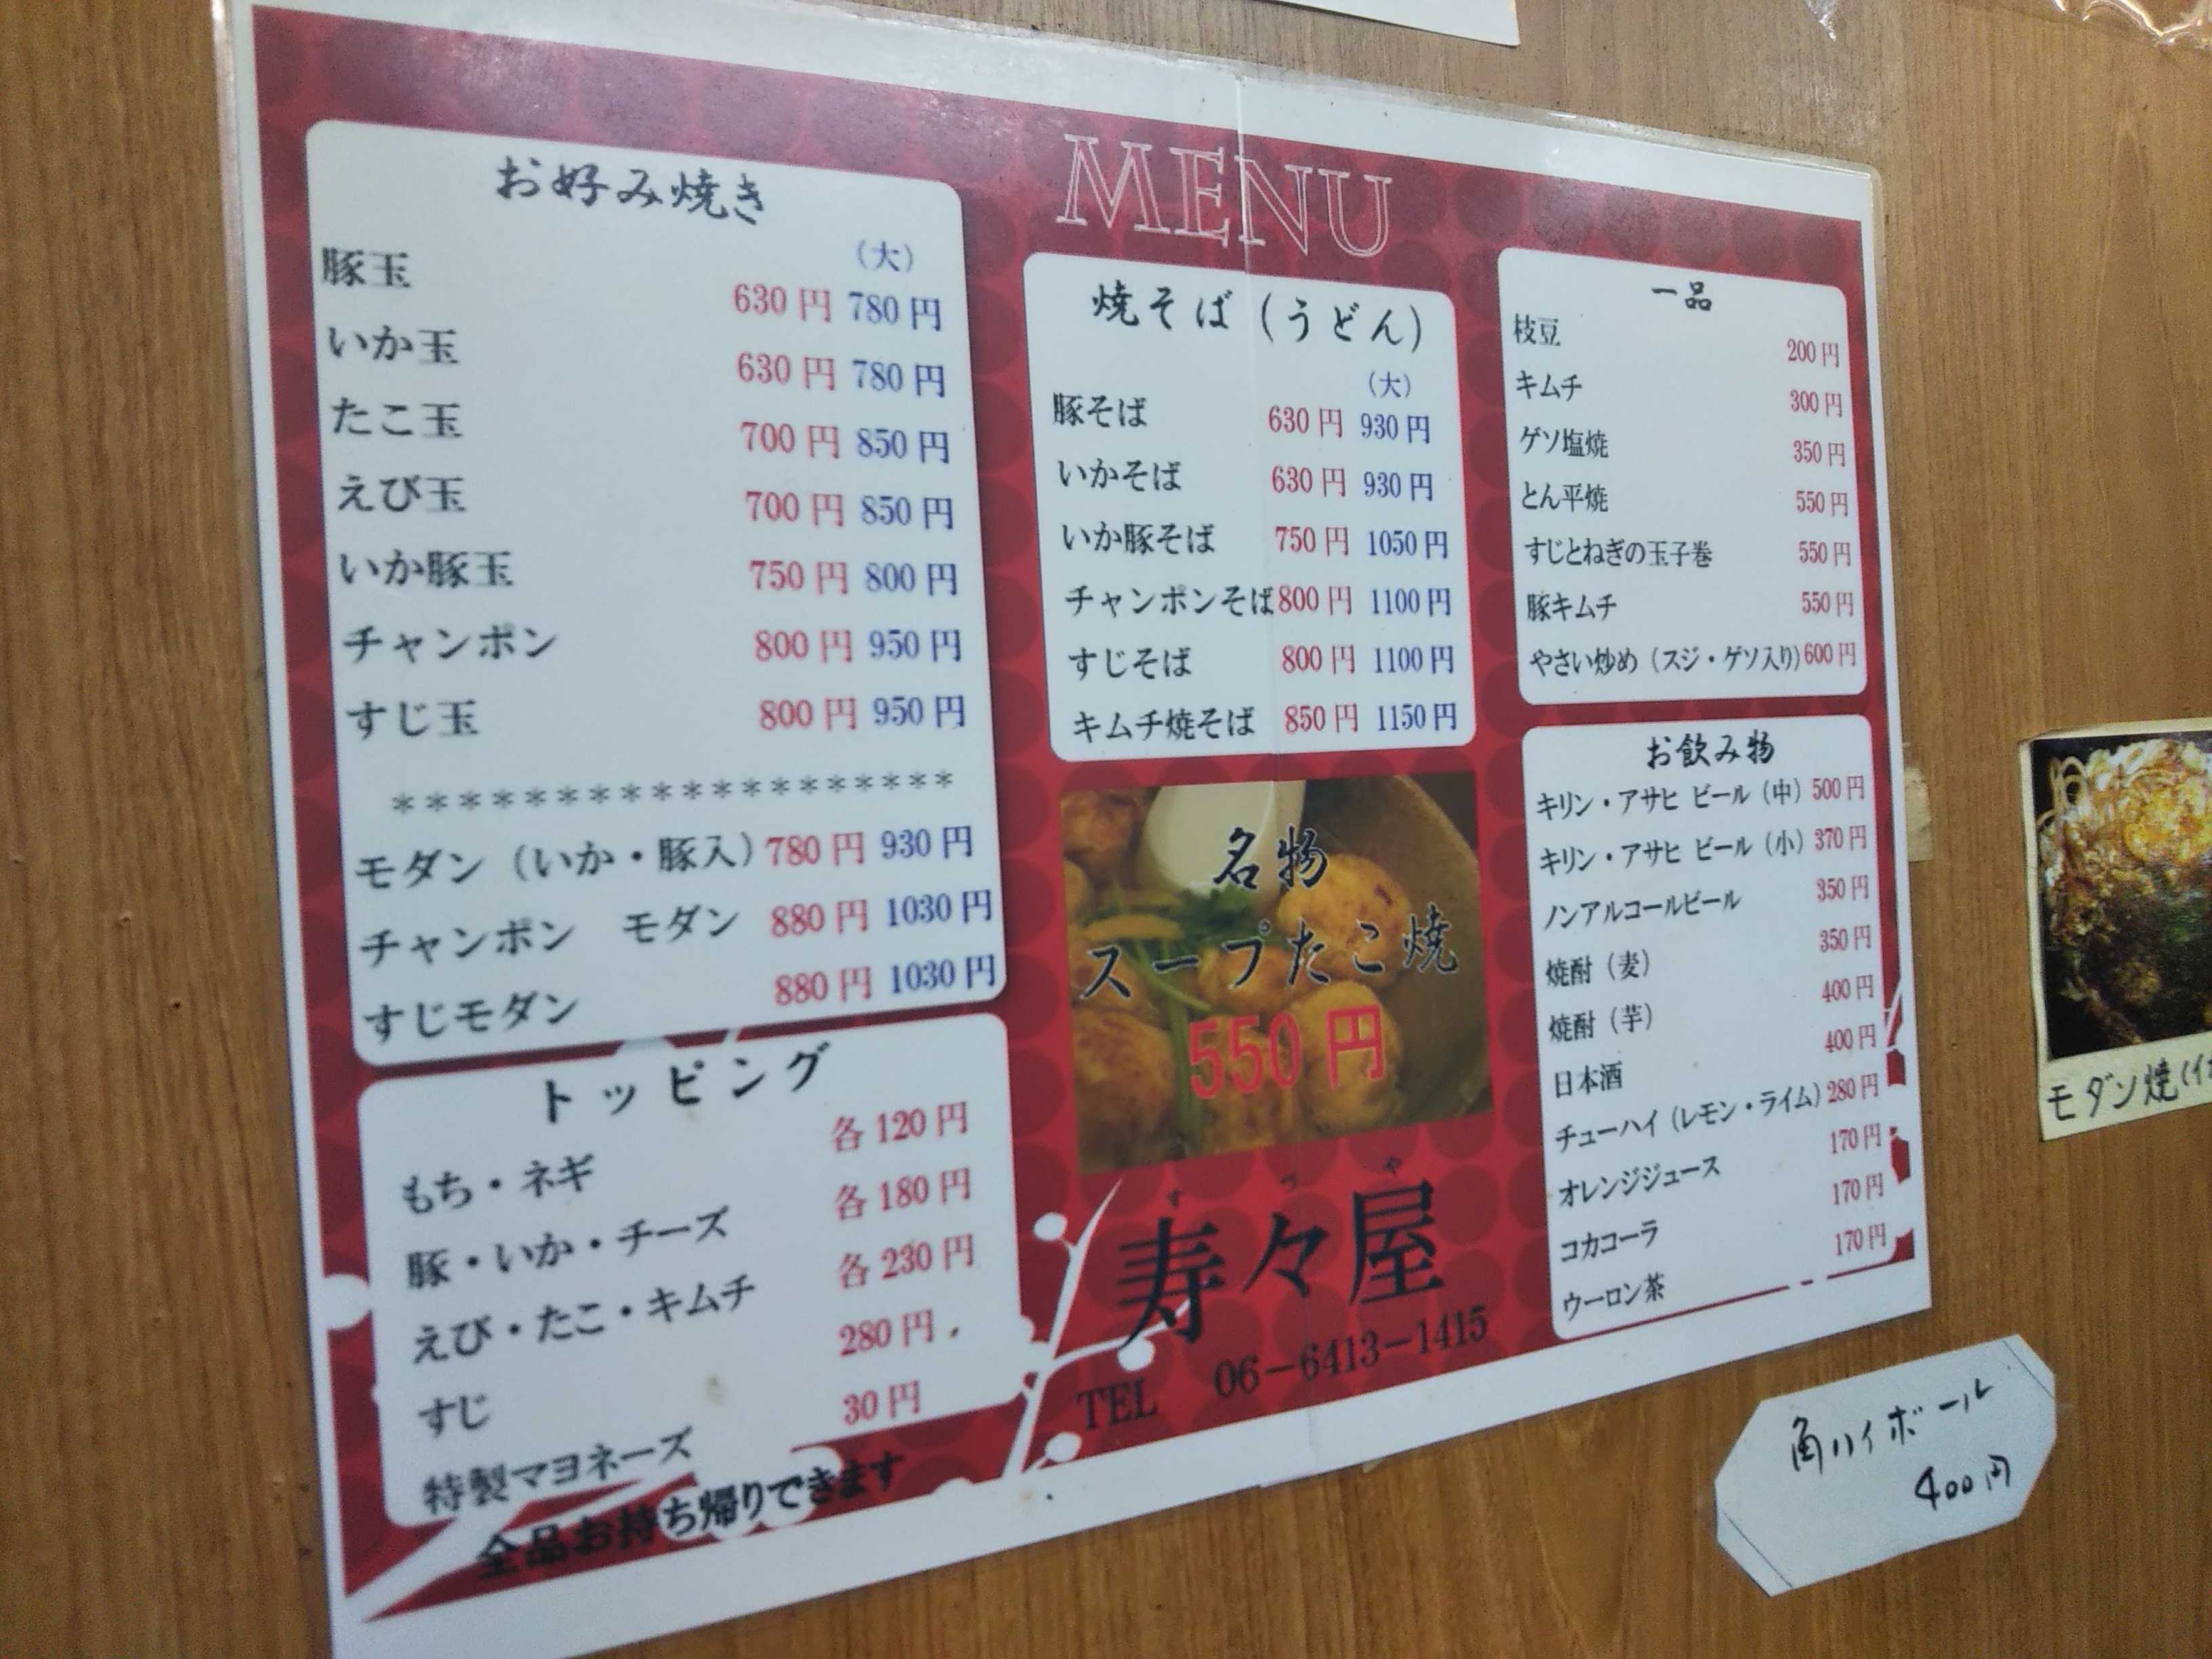 MENU
お好み焼き
（大）
豚玉 630円 780円
いか玉 630円 780円
たこ玉 700円 850円
えび玉 700円 850円
いか豚玉 750円 800円
チャンポン 800円 950円
すじ玉 800円 950円
******************
モダン（いか・豚入）780円 930円
チャンポン モダン 880円 1030円
すじモダン 880円 1030円
トッピング
もち・ネギ 各120円
豚・いか・チーズ 各180円
えび・たこ・キムチ 各230円
すじ 280円
特製マヨネーズ 30円
全品お持ち帰りできます
焼そば（うどん）
（大）
豚そば 630円 930円
いかそば 630円 930円
いか豚そば 750円 1050円
チャンポンそば 800円 1100円
すじそば 800円 1100円
キムチ焼そば 850円 1150円
名物
スープたこ焼
550円
寿々屋
TEL 06-6413-1415
一品
枝豆 200円
キムチ 300円
ゲソ塩焼 350円
とん平焼 550円
すじとねぎの玉子巻 550円
豚キムチ 550円
やさい炒め（スジ・ゲソ入り）600円
お飲み物
キリン・アサヒ ビール（中）500円
キリン・アサヒ ビール（小）370円
ノンアルコールビール 350円
焼酎（麦） 350円
焼酎（芋） 400円
日本酒 400円
チューハイ（レモン・ライム）280円
オレンジジュース 170円
コカコーラ 170円
ウーロン茶 170円
角ハイボール
400円
モダン焼